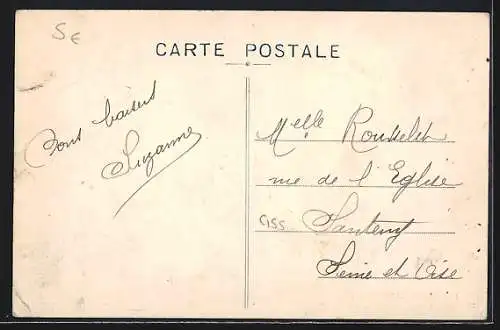 5 €
CARTE POSTALE
Bons baisers
Suzanne
Melle Rousselet
rue de l'Eglise
Santeny
Seine et Oise